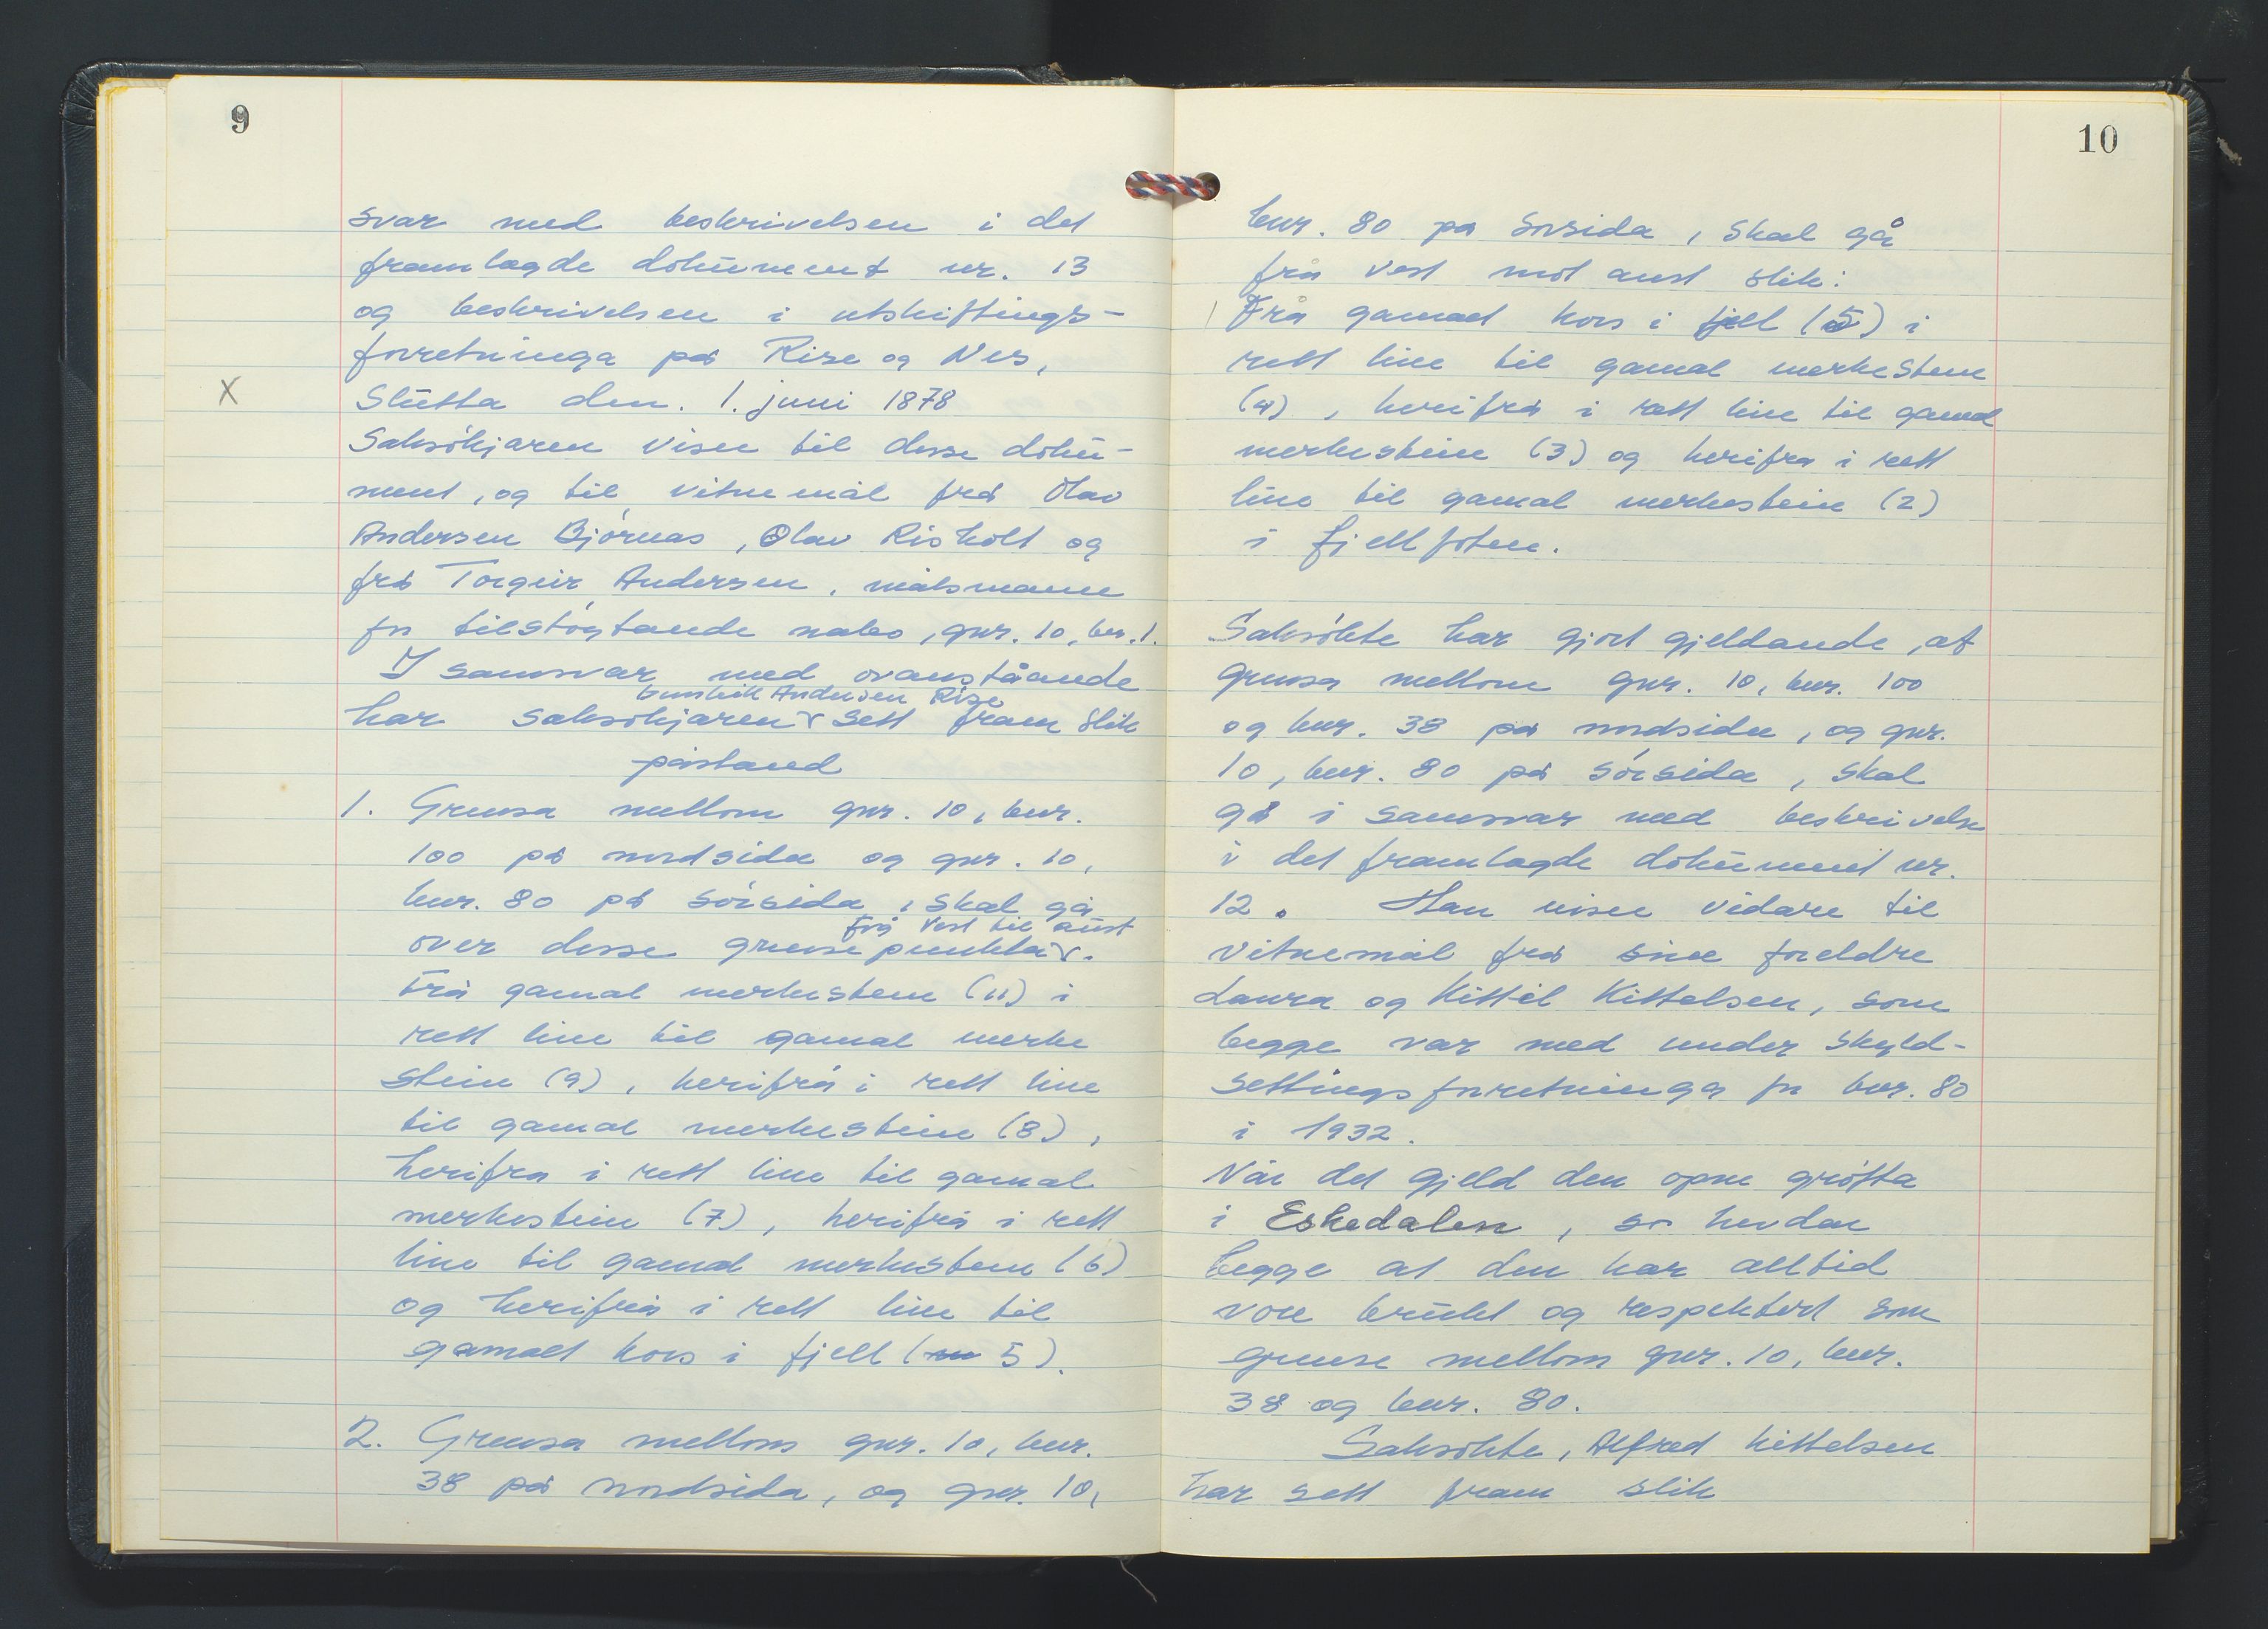 9
svar med beskrivelsen i det
framlagde dokument nr. 13
og beskrivelsen i utskiftings-
forretninga på Rise og Nes,
X
Slutta den. 1. juni 1878
Saksøkjaren viser til desse doku-
ment, og til vitnemål frå Olav
Andersen Bjørnas, Olav Risholt og
frå Torgeir Andersen, målsmann
for tilstøytande nabo, gnr. 10, bnr. 1.
I samsvar med ovanståande
Gunleik Andersen Rise
har saksøkjaren sett fram slik
påstand
1. Grensa mellom gnr. 10, bnr.
100 på nordsida og gnr. 10,
bnr. 80 på sørsida, skal gå
frå vest til aust
over desse grensepunkta.
Frå gamal merkestein (11) i
rett line til gamal merke
stein (9), herifrå i rett line
til gamal merkestein (8),
herifra i rett line til gamal
merkestein (7), herifrå i rett
line til gamal merkestein (6)
og herifrå i rett line til
gamalt kors i fjell (5).
2. Grensa mellom gnr. 10, bnr.
38 på nordsida, og gnr. 10,
10
bnr. 80 på sørsida, skal gå
frå vest mot aust slik:
Frå gamalt kors i fjell (5) i
rett line til gamal merkestein
(4), herifrå i rett line til gamal
merkestein (3) og herifra i rett
line til gamal merkestein (2)
i fjellfoten.
Saksøkte har gjort gjeldande, at
grensa mellom gnr. 10, bnr. 100
og bnr. 38 på nordsida, og gnr.
10, bnr. 80 på sørsida, skal
gå i samsvar med beskrivelse
i det framlagde dokument nr.
12. Han viser vidare til
vitnemål frå sine foreldre
Laura og Kittil Kittelsen, som
begge var med under skyld-
settingsforretninga for bnr. 80
i 1932.
Når det gjeld den opne grøfta
i Eskedalen, så hevdar
begge at den har alltid
vore brukt og respektert som
grense mellom gnr. 10, bnr.
38 og bnr. 80.
Saksøkte, Alfred Kittelsen
har sett fram slik